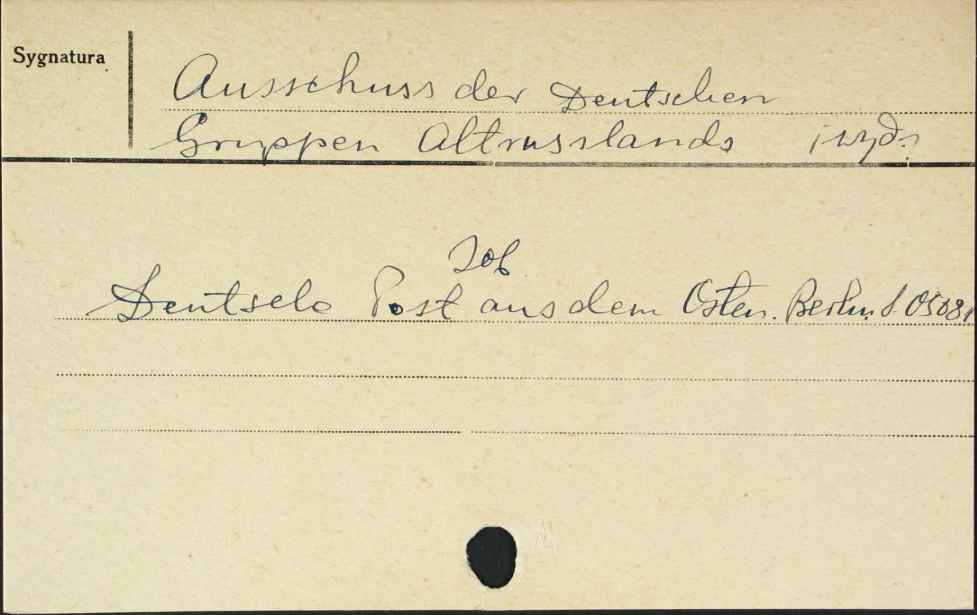 Sygnatura
Ausschuss der Deutschen
Gruppen Altrusslands i wyd.
Zob.
Deutsche Post aus dem Osten. Berlin S 05081